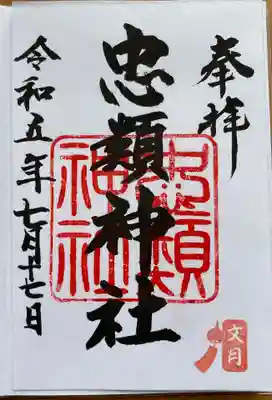 奉拝
忠類神社
忠類神社
令和五年七月十七日
文月